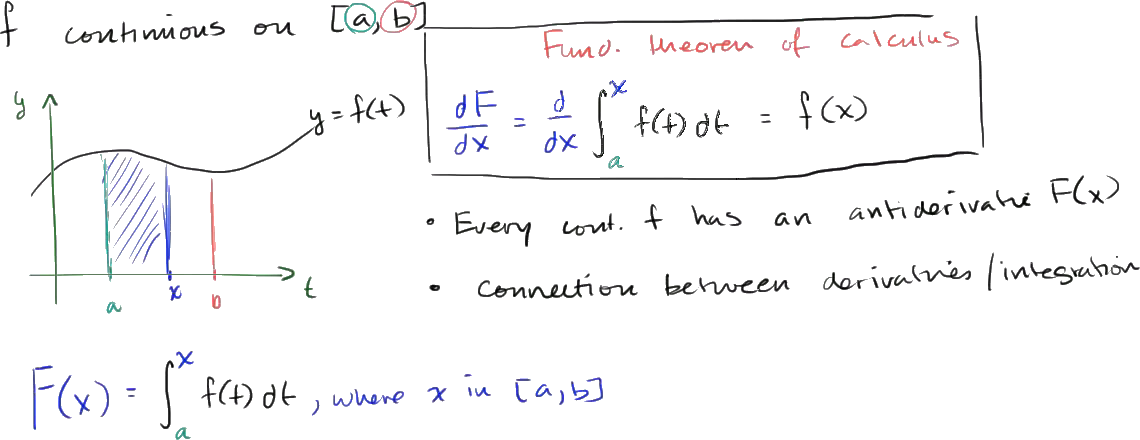 f continuous on [a, b]
Fund. theorem of calculus
dF/dx = d/dx ∫_a^x f(t) dt = f(x)
y
y = f(t)
• Every cont. f has an antiderivative F(x)
• connection between derivatives/integration
a x b t
F(x) = ∫_a^x f(t) dt, where x in [a,b]